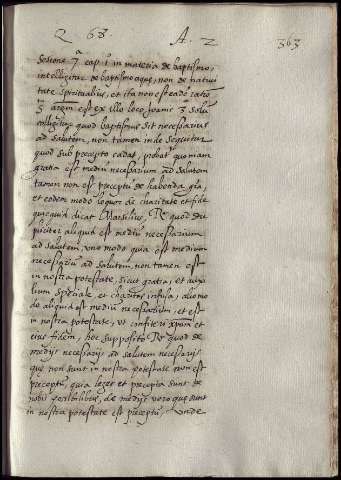 Q 68. A. 2 363
sesione 7ª cap. 1 in materia de baptismo,
intelligitur de baptismo aquę, non de nativi
tate spirituali, et ita non est eadẽ ratio
3 arḡm est ex illo loco Joanis 3 solũ
colligitur quod baptismus sit necessarius
ad salutem, non tamen inde sequitur
quod sub precepto cadat, probat quoniam
gratia est mediũ necessarium ad salutem
tamen non est preceptũ de habenda grã,
et eodem modo loquor de charitate et fide
quequid dicat Marsilius, R̃e quod du
pliciter aliquid est mediũ necessarium
ad salutem, uno modo quia est medium
necessariũ ad salutem, non tamen est
in nostra potestate, sicut gratia, et auxi
lium speciale et charitas infusa, alio mo
do aliquid est mediũ necessariũ, et est
in nostra potestate, ut confiteri xpũm et
eius fidem, hoc supposito R̃e quod de
medijs necessarijs ad salutem necessarijs
quę non sunt in nostra potestate non est
preceptũ, quia leges et precepta sunt de
nobis possibilibus, de medijs vero quę sunt
in nostra potestate est preceptũ, unde